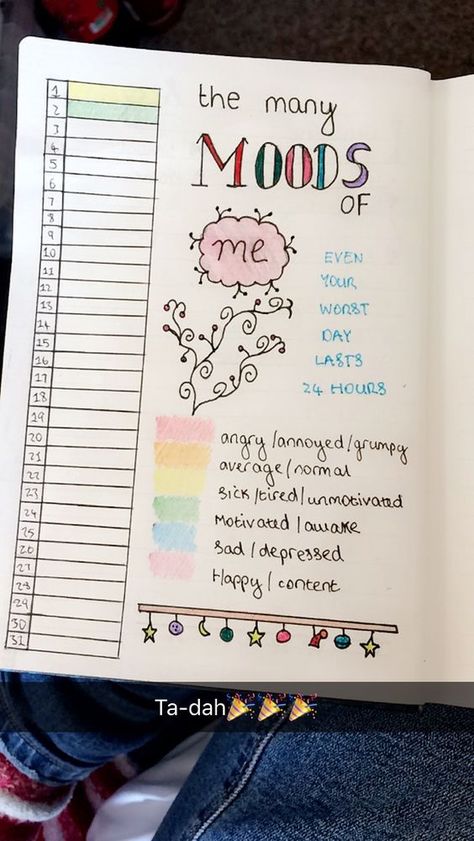 1
2
3
4
5
6
7
8
9
10
11
12
13
14
15
16
17
18
19
20
21
22
23
24
25
26
27
28
29
30
31
the many
MOODS
OF
me
EVEN
YOUR
WORST
DAY
LASTS
24 HOURS
angry/annoyed/grumpy
average/normal
Sick/tired/unmotivated
Motivated/awake
Sad/depressed
Happy/content
Ta-dah🎉🎉🎉